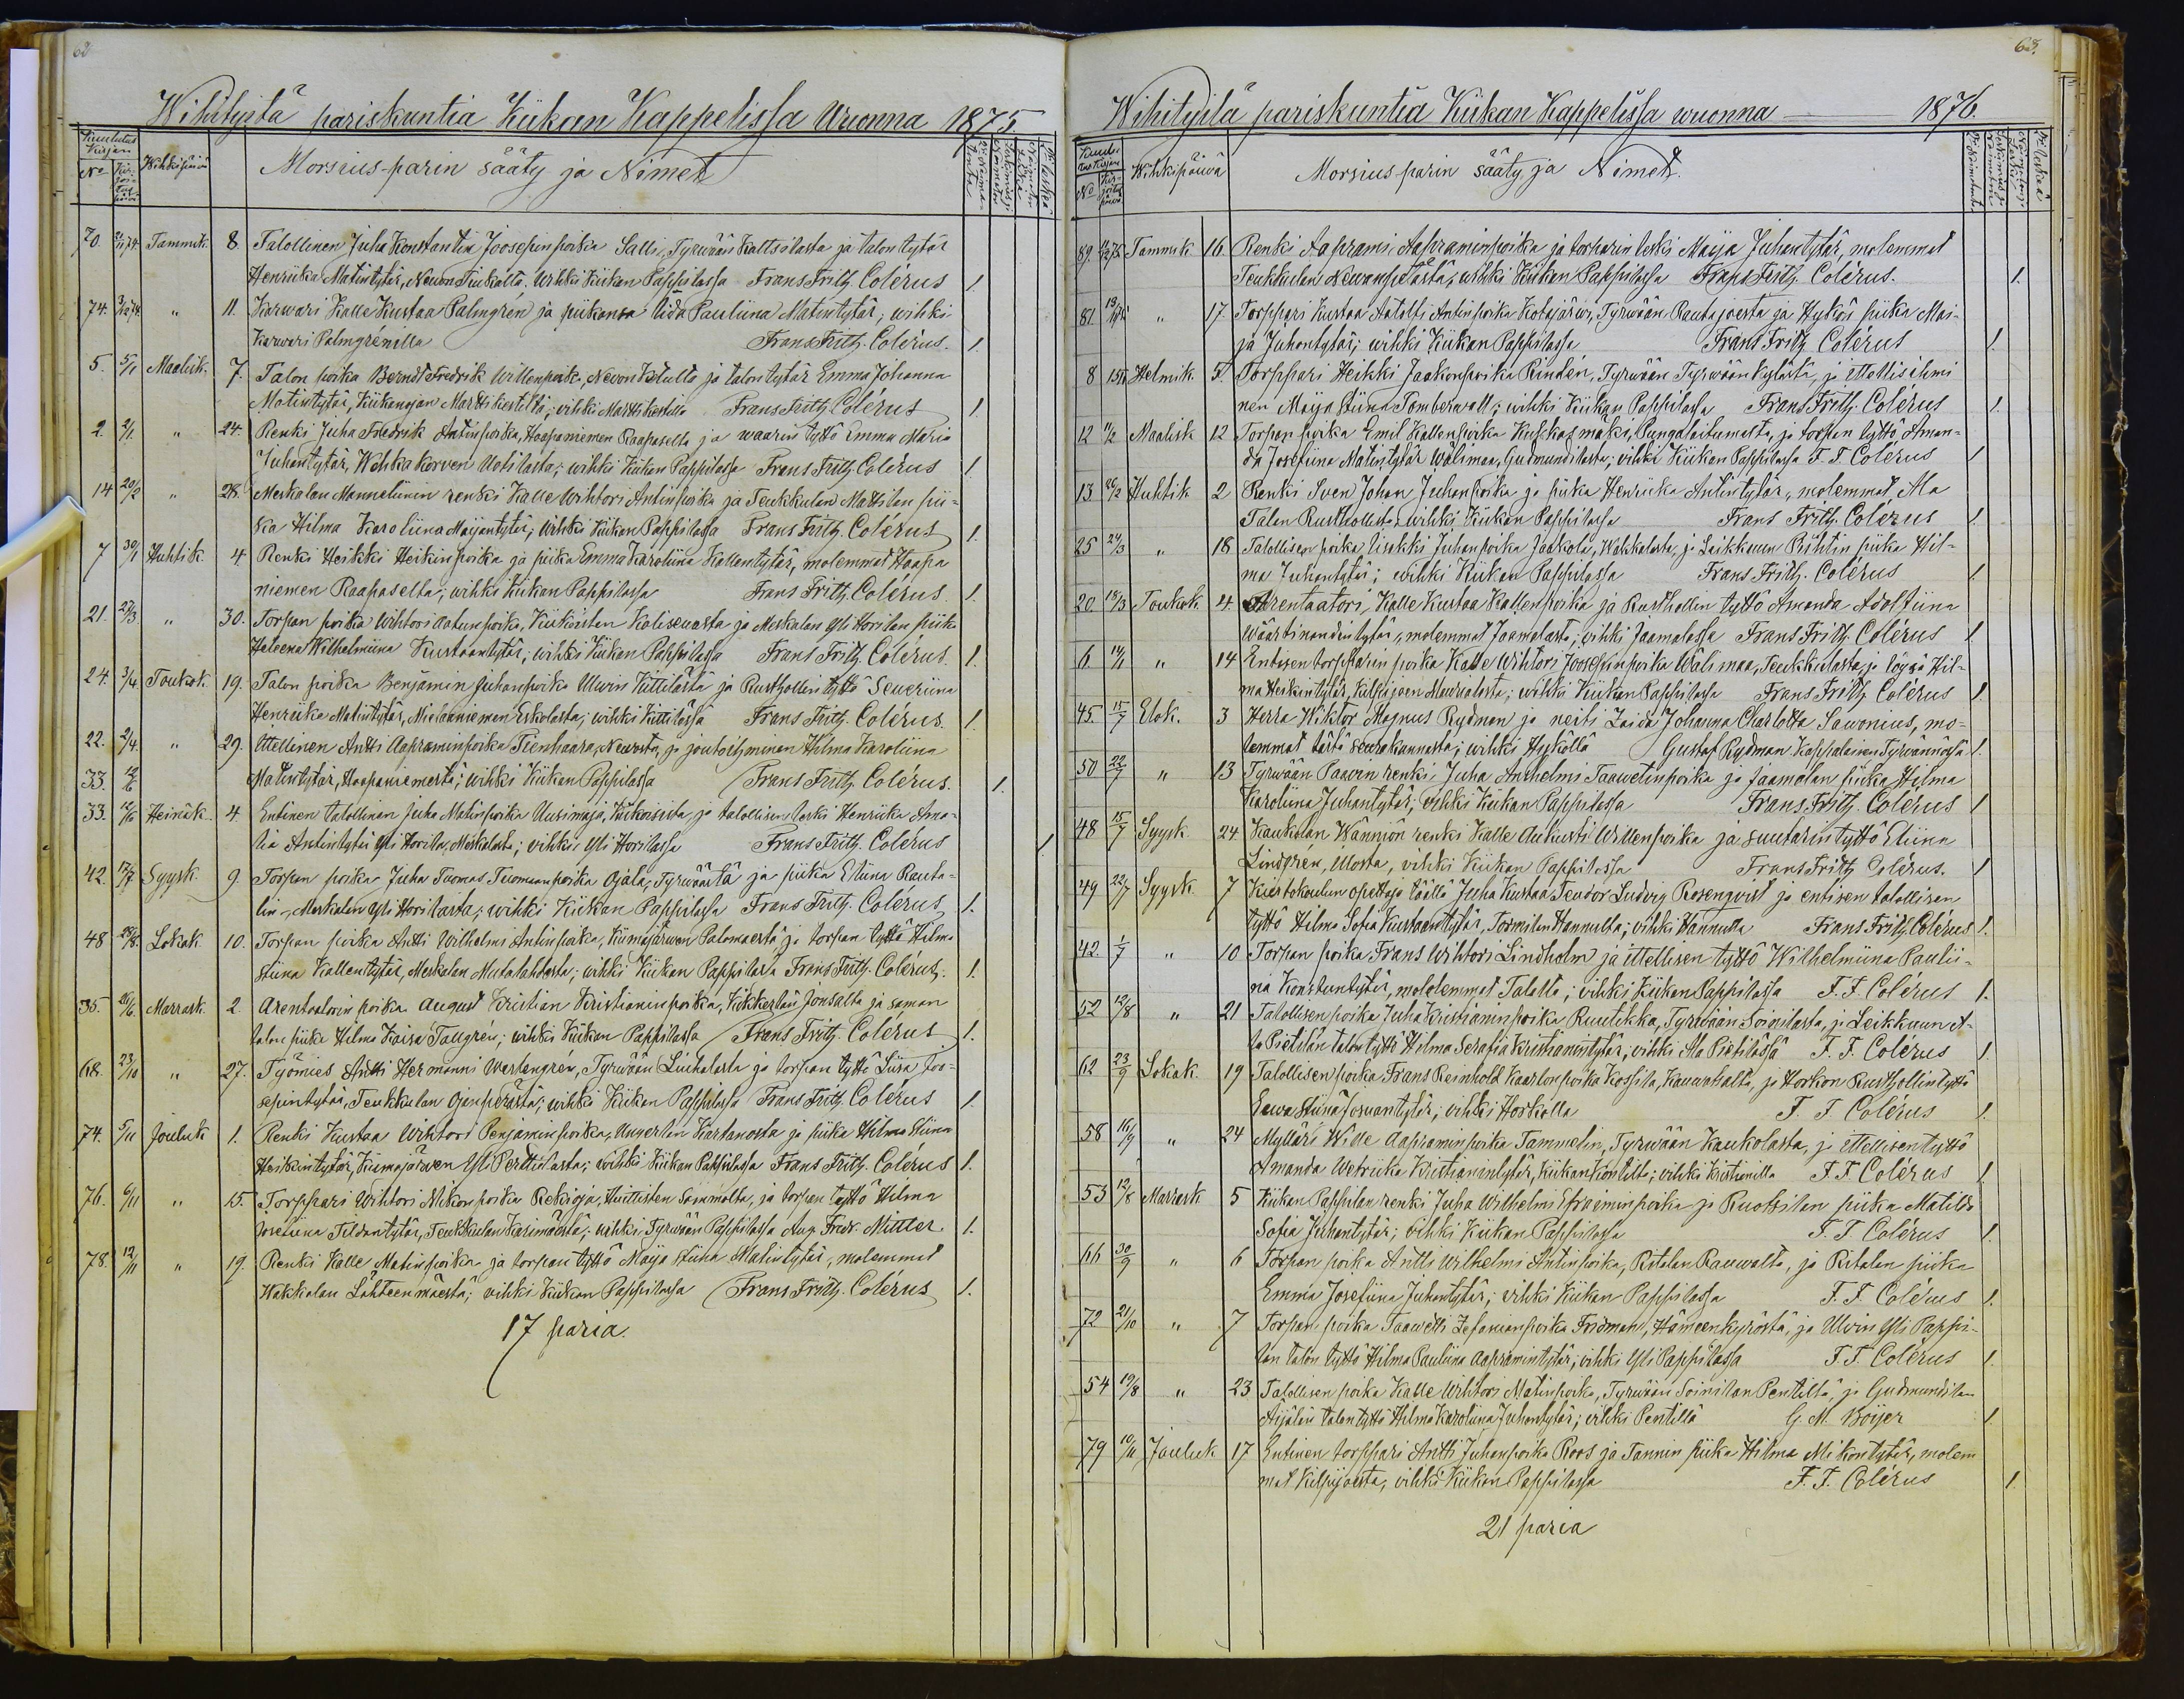 62
Wihityitä pariskuntia Kiikan Kappelissa Wuonna 1875
Kuulutus Kirjan
No Wihkipäivä Morsius-parin sääty ja Nimet
70. 21/11 74. Tammik. 8. Talollinen Juha Konstantin Joosepinpoika Salli, Tyrwään Kaltsilasta ja talon tytär
Henriika Matintytär, Newon Fiukalta. wihki Kiikan Pappilassa Frans Fritz. Colérus 1
74. 3/12 74. " 11. Karwari Kalle Kustaa Palmgrén ja piikansa Iida Pauliina Matintytär; wihki
Karwari Palmgrénilla Frans Fritz. Colérus. 1.
5. 5/1 Maalisk. 7. Talon poika Berndt Fredrik Willenpoika, Newon Ketulta ja talon tytär Emma Johanna
Matintytär, Kiikanojan Marttikertiltä; wihki Marttikertilla Frans Fritz Colérus 1.
2. 2/1. " 24. Renki Juha Fredrik Antinpoika, Haapaniemen Raapasella ja waarin tyttö Emma Maria
Juhantytär, Wihkakorven Uotilasta; wihki Kiikan Pappilassa Frans Fritz Colérus 1
14 20/2 " 28. Meskalan Mannelinin renki Kalle Wihtori Antinpoika ja Teukkulan Mattilan pii-
ka Hilma Karoliina Maijantytär; wihki Kiikan Pappilassa Frans Fritz. Colérus 1
7 30/1 Huhtik. 4 Renki Heikki Heikinpoika ja piika Emma Karoliina Kallentytär, molemmat Haapa
niemen Raapasella; wihki Kiikan Pappilassa Frans Fritz. Colérus. 1.
21. 27/3 " 30. Torpan poika Wihtori Aatunpoika, Kiikoisten Kaliseuasta ja Meskalan Yli Horilan piika
Heleena Wilhelmiina Kustaantytär; wihki Kiikan Pappilassa Frans Fritz. Colérus. 1.
24. 3/4. Toukok. 19. Talon poika Benjamin Juhanpoika Ulwin Kittilästä ja Rusthollin tyttö Seweriina
Henriika Matintytär, Mielaaniemen Eskolasta; wihki Kittilässä Frans Fritz. Colérus. 1.
22. 2/4. " 29. Ittellinen Antti Aapraminpoika Tienhaara, Newosta, ja joutoihminen Hilma Karoliina
33. Matintytär, Haapaniemestä; wihki Kiikan Pappilassa Frans Fritz. Colérus. 1.
33. 12/6 Heinäk. 4. Entinen talollinen Juha Matinpoika Uusimaja, Kiikoisista ja talollisen leski Henriika Ama-
lia Antintytär Yli Horila, Meskalasta; wihki Yli Horilassa Frans Fritz. Colérus 1
42. 17/7 Syysk. 9. Torpan poika Juha Tuomas Tuomaanpoika Ojala, Tyrwäätä ja piika Eliina Rauta-
lin, Meskalan Yli Horilasta; wihki Kiikan Pappilassa Frans Fritz. Colérus 1.
48 28/8. Lokak. 10. Torpan poika Antti Wilhelmi Antinpoika, Kiimajärwen Palomaesta ja torpan tyttö Hilma
Stiina Kallentytär, Meskalan Mutalahdesta; wihki Kiikan Pappilassa Frans Fritz. Colérus. 1.
35. 26/6. Marrask. 2. Arentaatorin poika August Kristian Kristianinpoika, Kikkerlän Jonsalta ja saman
talon piika Hilma Kaisa Tallgrén; wihki Kiikan Pappilassa Frans Fritz. Colérus 1.
68. 23/10 " 27. Työmies Antti Hermanni Westengrén, Tyrwään Liuhalasta ja torpan tyttö Liisa Joo-
sepintytär, Teukkulan Ojanperästä; wihki Kiikan Pappilassa Frans Fritz. Colérus 1.
74. 5/11 Jouluk 1. Renki Kustaa Wihtori Penjaminpoika, Ungerlan Kartanosta ja piika Hilma Stiina
Heikintytär, Kiimajärwen Yli Perttilästa; wihki Kiikan Pappilassa Frans Fritz. Colérus 1.
76. 6/11 " 15. Torppari Wihtori Mikonpoika Rekioja, Huittisten Sammolta, ja torpan tyttö Hilma
Josefiina Tildantytär, Teukkulan Karimäestä; wihki Tyrwään Pappilassa Aug. Fredr. Mittler. 1.
78. 12/11 " 19. Renki Kalle Matinpoika ja torpan tyttö Maija Stiina Matintytär, molemmat
Wakkalan Lähteenmäestä; wihki Kiikan Pappilassa Frans Fritz. Colérus 1.
17 paria.
63.
Wihityitä pariskuntia Kiikan Kappelissa wuonna 1876.
Kuulutus Kirjan
No Wihkipäiwä Morsius-parin sääty ja Nimet.
89. Tammik. 16. Renki Aaprami Aapraminpoika ja torparin leski Maija Juhantytär, molemmat
Teukkulan Newanpäästä; wihki Kiikan Pappilassa Frans Fritz. Colérus. 1.
81. " 17 Torppari Kustaa Aatolfi Antinpoika Kotajärwi, Tyrwään Rautajoesta ja Hykön piika Mai-
ja Juhontytär; wihki Kiikan Pappilassa Frans Fritz Colérus 1.
8 15/1 Helmik. 5. Torppari Heikki Jaakonpoika Rindén, Tyrwään Tyrwäänkylästä, ja ittellisihmi
nen Maija Stiina Tomberwall; wihki Kiikan Pappilassa Frans Fritz. Colérus 1.
12 11/2 Maalisk 12 Torpan poika Emil Kallenpoika Kuskasmäki, Pungalaitumesta, ja torpan tyttö Aman-
da Josefiina Matintytär Wälimaa, Gudmundilasta; wihki Kiikan Pappilassa F. F. Colérus 1
13 26/2 Huhtik 2 Renki Sven Johan Juhanpoika ja piika Henriika Antintytär, molemmat Ala
Talan Rusthollista; wihki Kiikan Pappilassa Frans Fritz. Colérus 1.
25 24/3 " 18 Talollisen poika Iisakki Juhanpoika Jaakola, Wakkalasta, ja Leikkuun Pirhtin piika Hil-
ma Juhantytär; wihki Kiikan Pappilassa Frans Fritz. Colérus 1.
20 18/3 Toukok. 4. Arentaatori Kalle Kustaa Kallenpoika ja Rusthollin tyttö Amanda Adolfiina
Wäärtinandintytär, molemmat Jaamalasta; wihki Jaamalassa Frans Fritz. Colérus 1
6. 14/1 " 14 Entisen torpparin poika Kalle Wihtori Joosepinpoika Wälimaa, Teukkulasta, ja löysä Hil-
ma Heikintytär, Kilpijoen Maurialasta; wihki Kiikan Pappilassa Frans Fritz Colérus 1.
45. 15/7 Elok. 3 Herra Wiktor Magnus Rydman ja neiti Zaida Johanna Charlotta Sawonius, mo-
lemmat tästä seurakunnasta; wihki Hykölla Gustaf Rydman Kappalainen Tyrwännössä 1.
50 22/7 " 13 Tyrwään Paawin renki Juha Anshelmi Taawetinpoika ja Jaamalan piika Hilma
Karoliina Juhantytär; wihki Kiikan Pappilassa Frans Fritz. Colérus 1
48 15/7 Syysk 24 Kaukolan Wännjön renki Kalle Aukusti Willenpoika ja suutarin tyttö Eliina
Lindgrén, Illosta, wihki Kiikan Pappilassa Frans Fritz Colérus. 1
49 22/7 Syysk. 7 Kiertokoulun opettaja täällä Juha Kustaa Teudor Ludvig Rosenqvist ja entisen talollisen
tyttö Hilma Sofia Kustaantytär, Tormilan Hannulta; wihki Hannulla Frans Fritz Colérus 1.
42. 1/7 " 10 Torpan poika Frans Wihtori Lindholm ja ittellisen tyttö Wilhelmiina Paulii-
na Konstantytär, molemmat Talalta; wihki Kiikan Pappilassa F. F. Colérus 1.
52 12/8 " 21 Talollisen poika Juha Kristianinpoika Ruutikka, Tyrwään Soinilasta, ja Leikkuun A-
la Pietilän talon tyttö Hilma Serafia Kristianintytär; wihki Ala Pietilässä F. F. Colérus 1
62 23/9 Lokak. 19 Talollisen poika Frans Reinhold Kaarlonpoika Kossila, Kauwatsalta, ja Horkon Rusthollin tyttö
Eewa Stiina Josuantytär; wihki Horkolla F. F. Colérus 1.
58 16/9 " 24 Mylläri Wille Aapraminpoika Tammelin, Tyrwään Kaukolasta, ja ittellisen tyttö
Amanda Wetriika Kristianintytär, Kiikan Kristilta; wihki Kristianilla F. F. Colérus 1
53 12/8 Marrask 5 Kiikan Pappilan renki Juha Wilhelmi Efraiminpoika ja Ruotsilan piika Matilda
Sofia Juhantytär; wihki Kiikan Pappilassa F. F. Colérus 1.
66 30/9 " 6 Torpan poika Antti Wilhelmi Antinpoika, Ritalan Rauwalta, ja Ritalan piika
Emma Josefiina Juhantytär; wihki Kiikan Pappilassa F. F. Colérus 1.
72 21/10 " 7 Torpan poika Taawetti Zefanianpoika Fridman, Hämeenkyröstä, ja Ulwin Yli Pappi-
lan talon tyttö Hilma Pauliina Aapramintytär; wihki Yli Pappilassa F. F. Colérus 1.
54 19/8 " 23 Talollisen poika Kalle Wihtori Matinpoika, Tyrwään Soinilan Pentiltä, ja Gudmundilan
Äijälän talon tyttö Hilma Karoliina Juhantytär; wihki Pentillä G. M. Boijer 1.
79 10/11 Jouluk 17 Entinen torppari Antti Juhanpoika Roos ja Tannin piika Hilma Mikontytär, molem
mat Kilpijoesta, wihki Kiikan Pappilassa F. F. Colérus 1.
21 paria